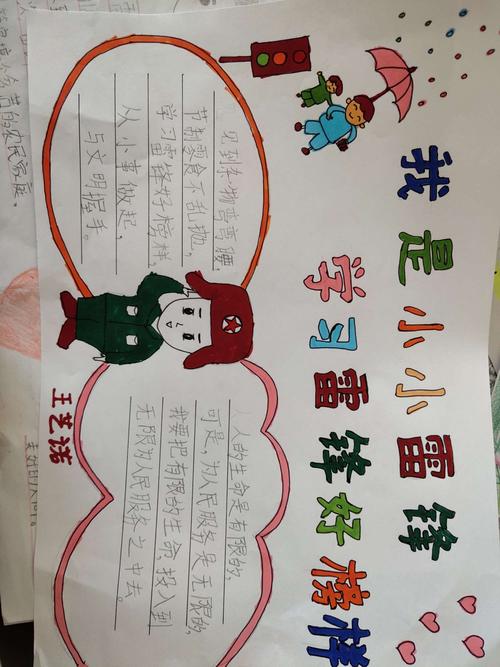 我是小小雷锋
学习雷锋好榜样
见到杂物弯弯腰,
节制零食不乱抛,
学习雷锋好榜样,
从小事做起,
与文明握手。
人的生命是有限的,
可是,为人民服务是无限的,
我要把有限的生命,投入到
无限为人民服务之中去。
王艺诺
苦的农民家庭。